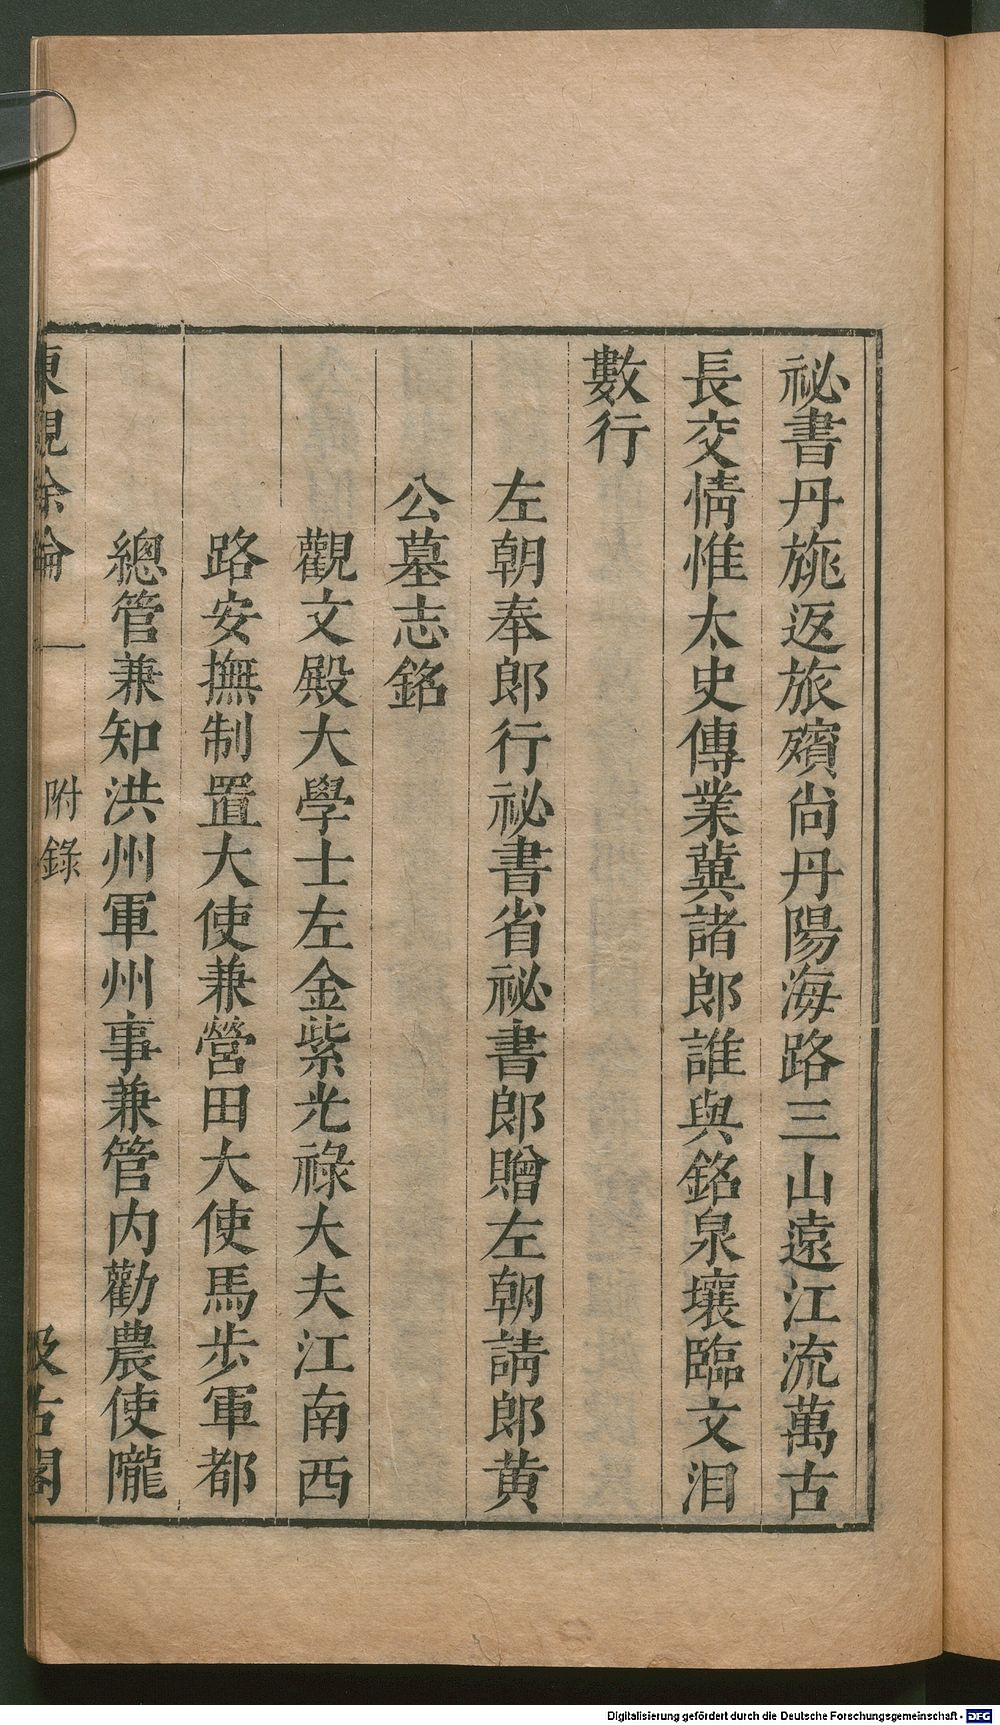 祕書丹旐返旅殯尚丹陽海路三山遠江流萬古
長交情惟太史傳業冀諸郎誰與銘泉壤臨文泪
數行
左朝奉郎行祕書省祕書郎贈左朝請郎黄
公墓志銘
觀文殿大學士左金紫光祿大夫江南西
路安撫制置大使兼營田大使馬步軍都
總管兼知洪州軍州事兼管内勸農使隴
東觀餘論 附錄 汲古閣
Digitalisierung gefördert durch die Deutsche Forschungsgemeinschaft - DFG